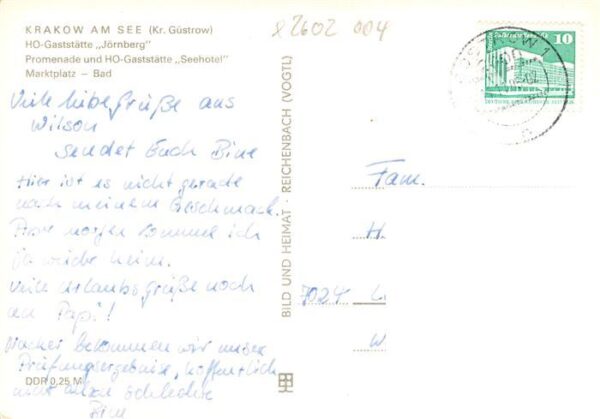 KRAKOW AM SEE (Kr. Güstrow)
HO-Gaststätte „Jörnberg"
Promenade und HO-Gaststätte „Seehotel"
Marktplatz – Bad
Viele liebe Grüße aus
Wilson
sendet Euch Bine
Hier ist es nicht gerade
nach meinem Geschmack.
morgen komme ich
ja wieder heim.
Viele Urlaubsgrüße noch
an Papi!
bekommen wir unsere
Prüfungsergebnise, hoffentlich
nicht allzu schlechte
DDR 0,25 M
BILD UND HEIMAT REICHENBACH (VOGTL)
2602 004
10
Fam.
H
7024 L
W